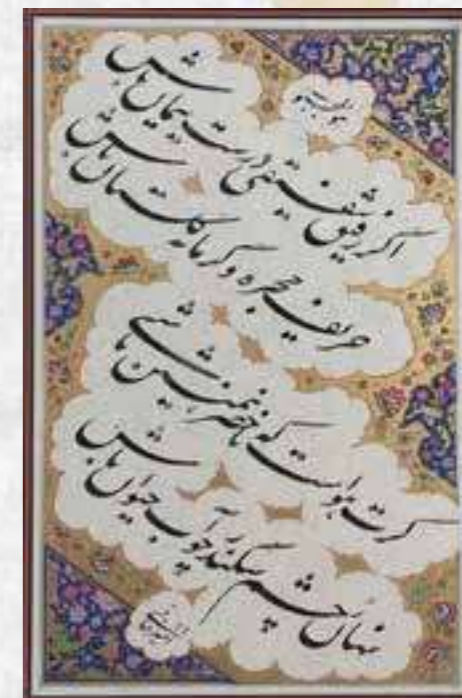 اگر رفیق شفیقی درست پیمان باش
حریف حجره و گرمابه و گلستان باش
گرت هواست که با خضر همنشین باشی
نهان ز چشم سکندر چو آب حیوان باش